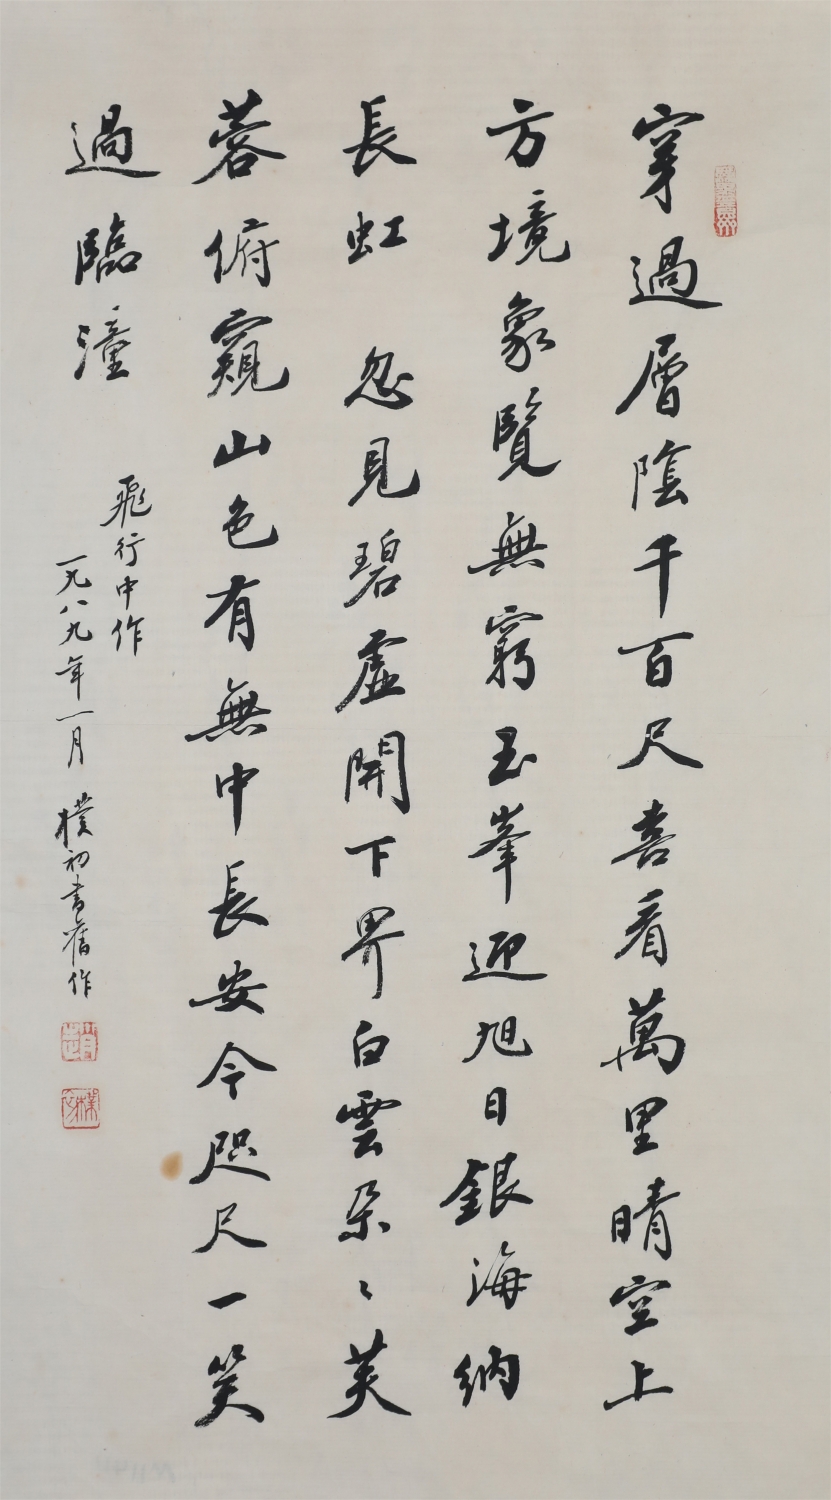 穿過層陰千百尺喜看萬里晴空上
方境象覽無窮玉峯迎旭日銀海納
長虹 忽見碧虛開下界白雲朶〻芙
蓉俯窺山色有無中長安今咫尺一笑
過臨潼
飛行中作
一九八九年一月 樸初書舊作